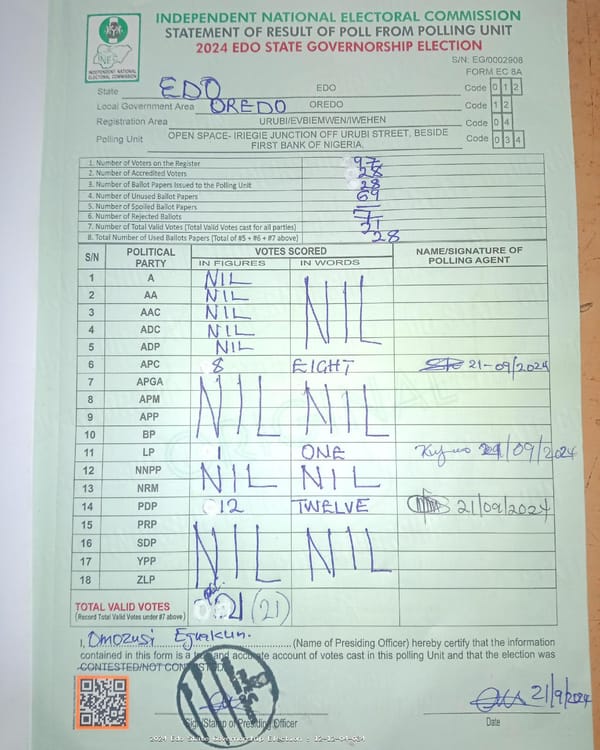 INDEPENDENT NATIONAL ELECTORAL COMMISSION
STATEMENT OF RESULT OF POLL FROM POLLING UNIT
2024 EDO STATE GOVERNORSHIP ELECTION
INEC
INDEPENDENT NATIONAL ELECTORAL COMMISSION
S/N: EG/0002908
FORM EC 8A
State EDO EDO Code 0 1 2
Local Government Area OREDO OREDO Code 1 2
Registration Area URUBI/EVBIEMWEN/IWEHEN Code 0 4
Polling Unit OPEN SPACE- IRIEGIE JUNCTION OFF URUBI STREET, BESIDE FIRST BANK OF NIGERIA. Code 0 3 4
1. Number of Voters on the Register 97
2. Number of Accredited Voters 28
3. Number of Ballot Papers Issued to the Polling Unit 28
4. Number of Unused Ballot Papers 69
5. Number of Spoiled Ballot Papers —
6. Number of Rejected Ballots 7
7. Number of Total Valid Votes (Total Valid Votes cast for all parties) 21
8. Total Number of Used Ballots Papers (Total of #5 + #6 + #7 above) 28
S/N POLITICAL PARTY VOTES SCORED NAME/SIGNATURE OF POLLING AGENT
IN FIGURES IN WORDS
1 A NIL NIL
2 AA NIL
3 AAC NIL
4 ADC NIL
5 ADP NIL
6 APC 8 EIGHT 21-09/2024
7 APGA NIL NIL
8 APM
9 APP
10 BP
11 LP 1 ONE 21/09/2024
12 NNPP NIL NIL
13 NRM
14 PDP 12 TWELVE 21/09/2024
15 PRP NIL NIL
16 SDP
17 YPP
18 ZLP
TOTAL VALID VOTES 21 (21)
(Record Total Valid Votes under #7 above)
I, Omozusi Eguakun. (Name of Presiding Officer) hereby certify that the information
contained in this form is a true and accurate account of votes cast in this polling Unit and that the election was
CONTESTED/NOT CONTESTED
21/9/2024
Sign/Stamp of Presiding Officer Date
2024 Edo State Governorship Election : 12-12-04-034